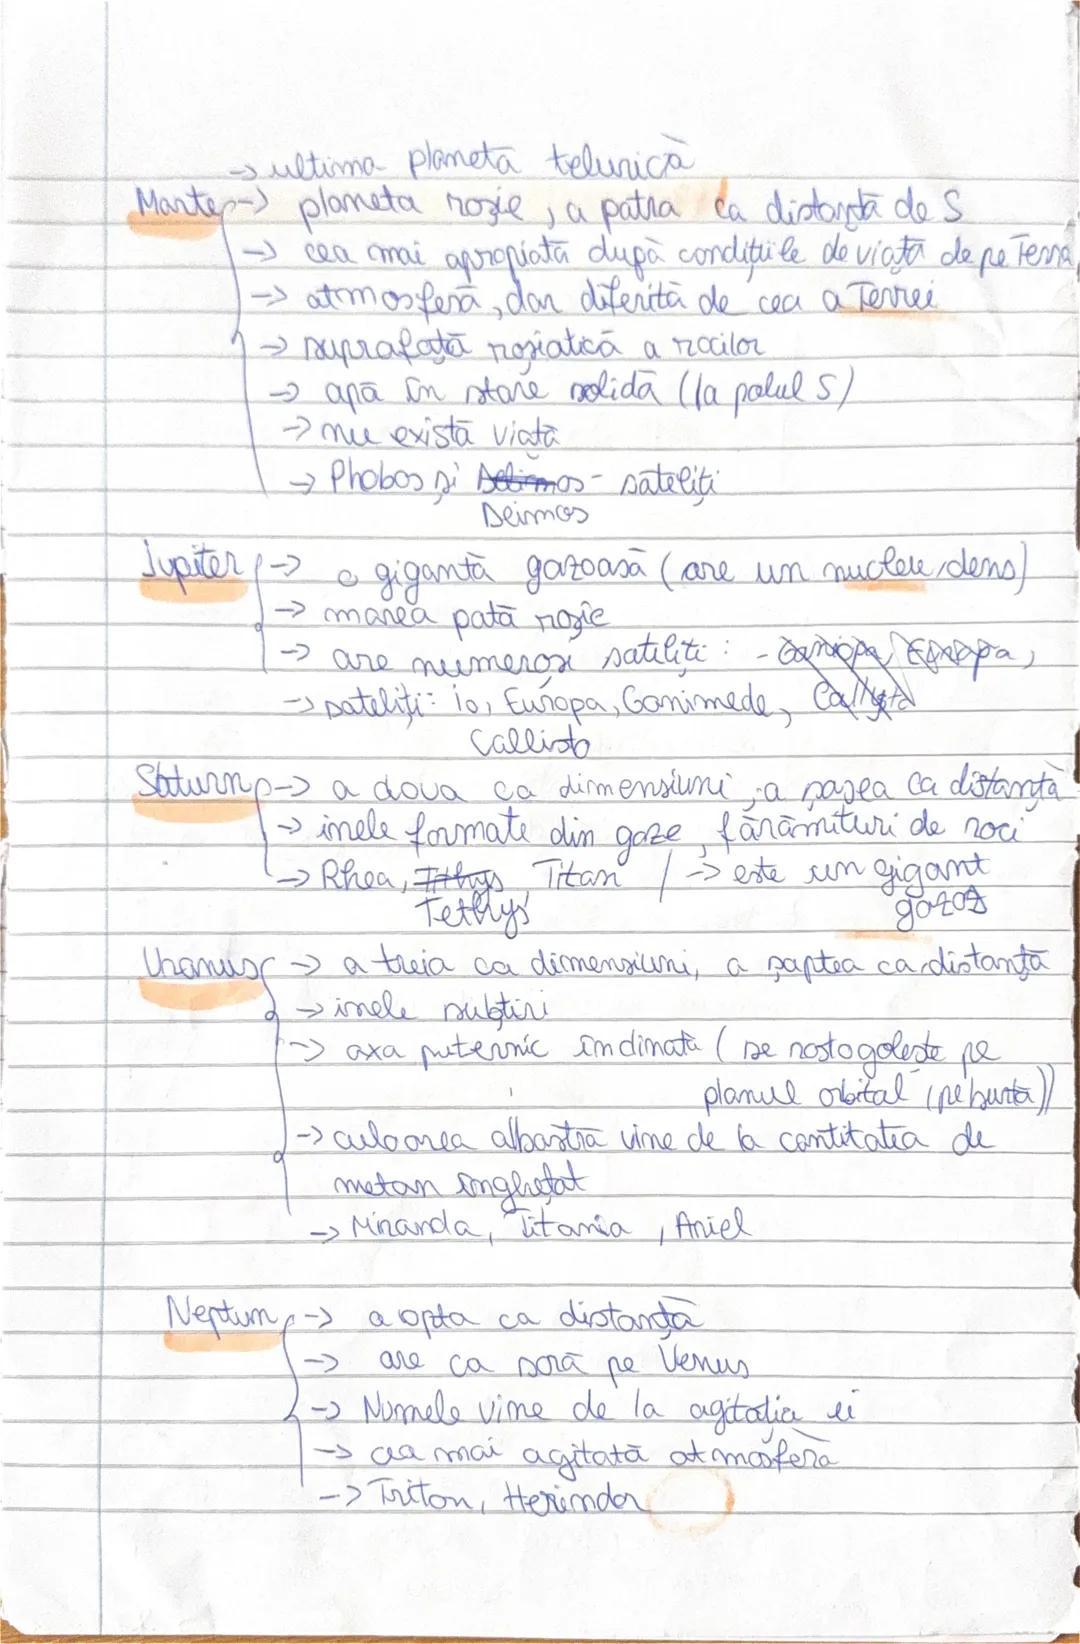 → ultima planetă telurică
Marte → planeta roșie, a patra ca distanță de S
→ cea mai apropiată după condițiile de viață de pe Terra
→ atmosferă, dar diferită de cea a Terrei
→ suprafață roșiatică a rocilor
→ apă în stare solidă (la polul S)
→ nu există viață
→ Phobos și - sateliți
Deimos
Jupiter → o gigantă gazoasă (are un nucleu dens)
→ marea pată roșie
→ are numeroși sateliți: - Europa,
→ sateliți: Io, Europa, Ganimede,
Callisto
Saturn → a doua ca dimensiuni, a șasea ca distanță
→ inele formate din gaze, fărâmituri de roci
→ Rhea, Titan / → este un gigant
Tethys gazos
Uranus → a treia ca dimensiuni, a șaptea ca distanță
→ inele subțiri
→ axa puternic înclinată (se rostogolește pe
planul orbital (pe burtă))
→ culoarea albastră vine de la cantitatea de
metan înghețat
→ Miranda, Titania, Ariel
Neptun → a opta ca distanță
→ are ca soră pe Venus
→ Numele vine de la agitația ei
→ cea mai agitată atmosferă
→ Triton,